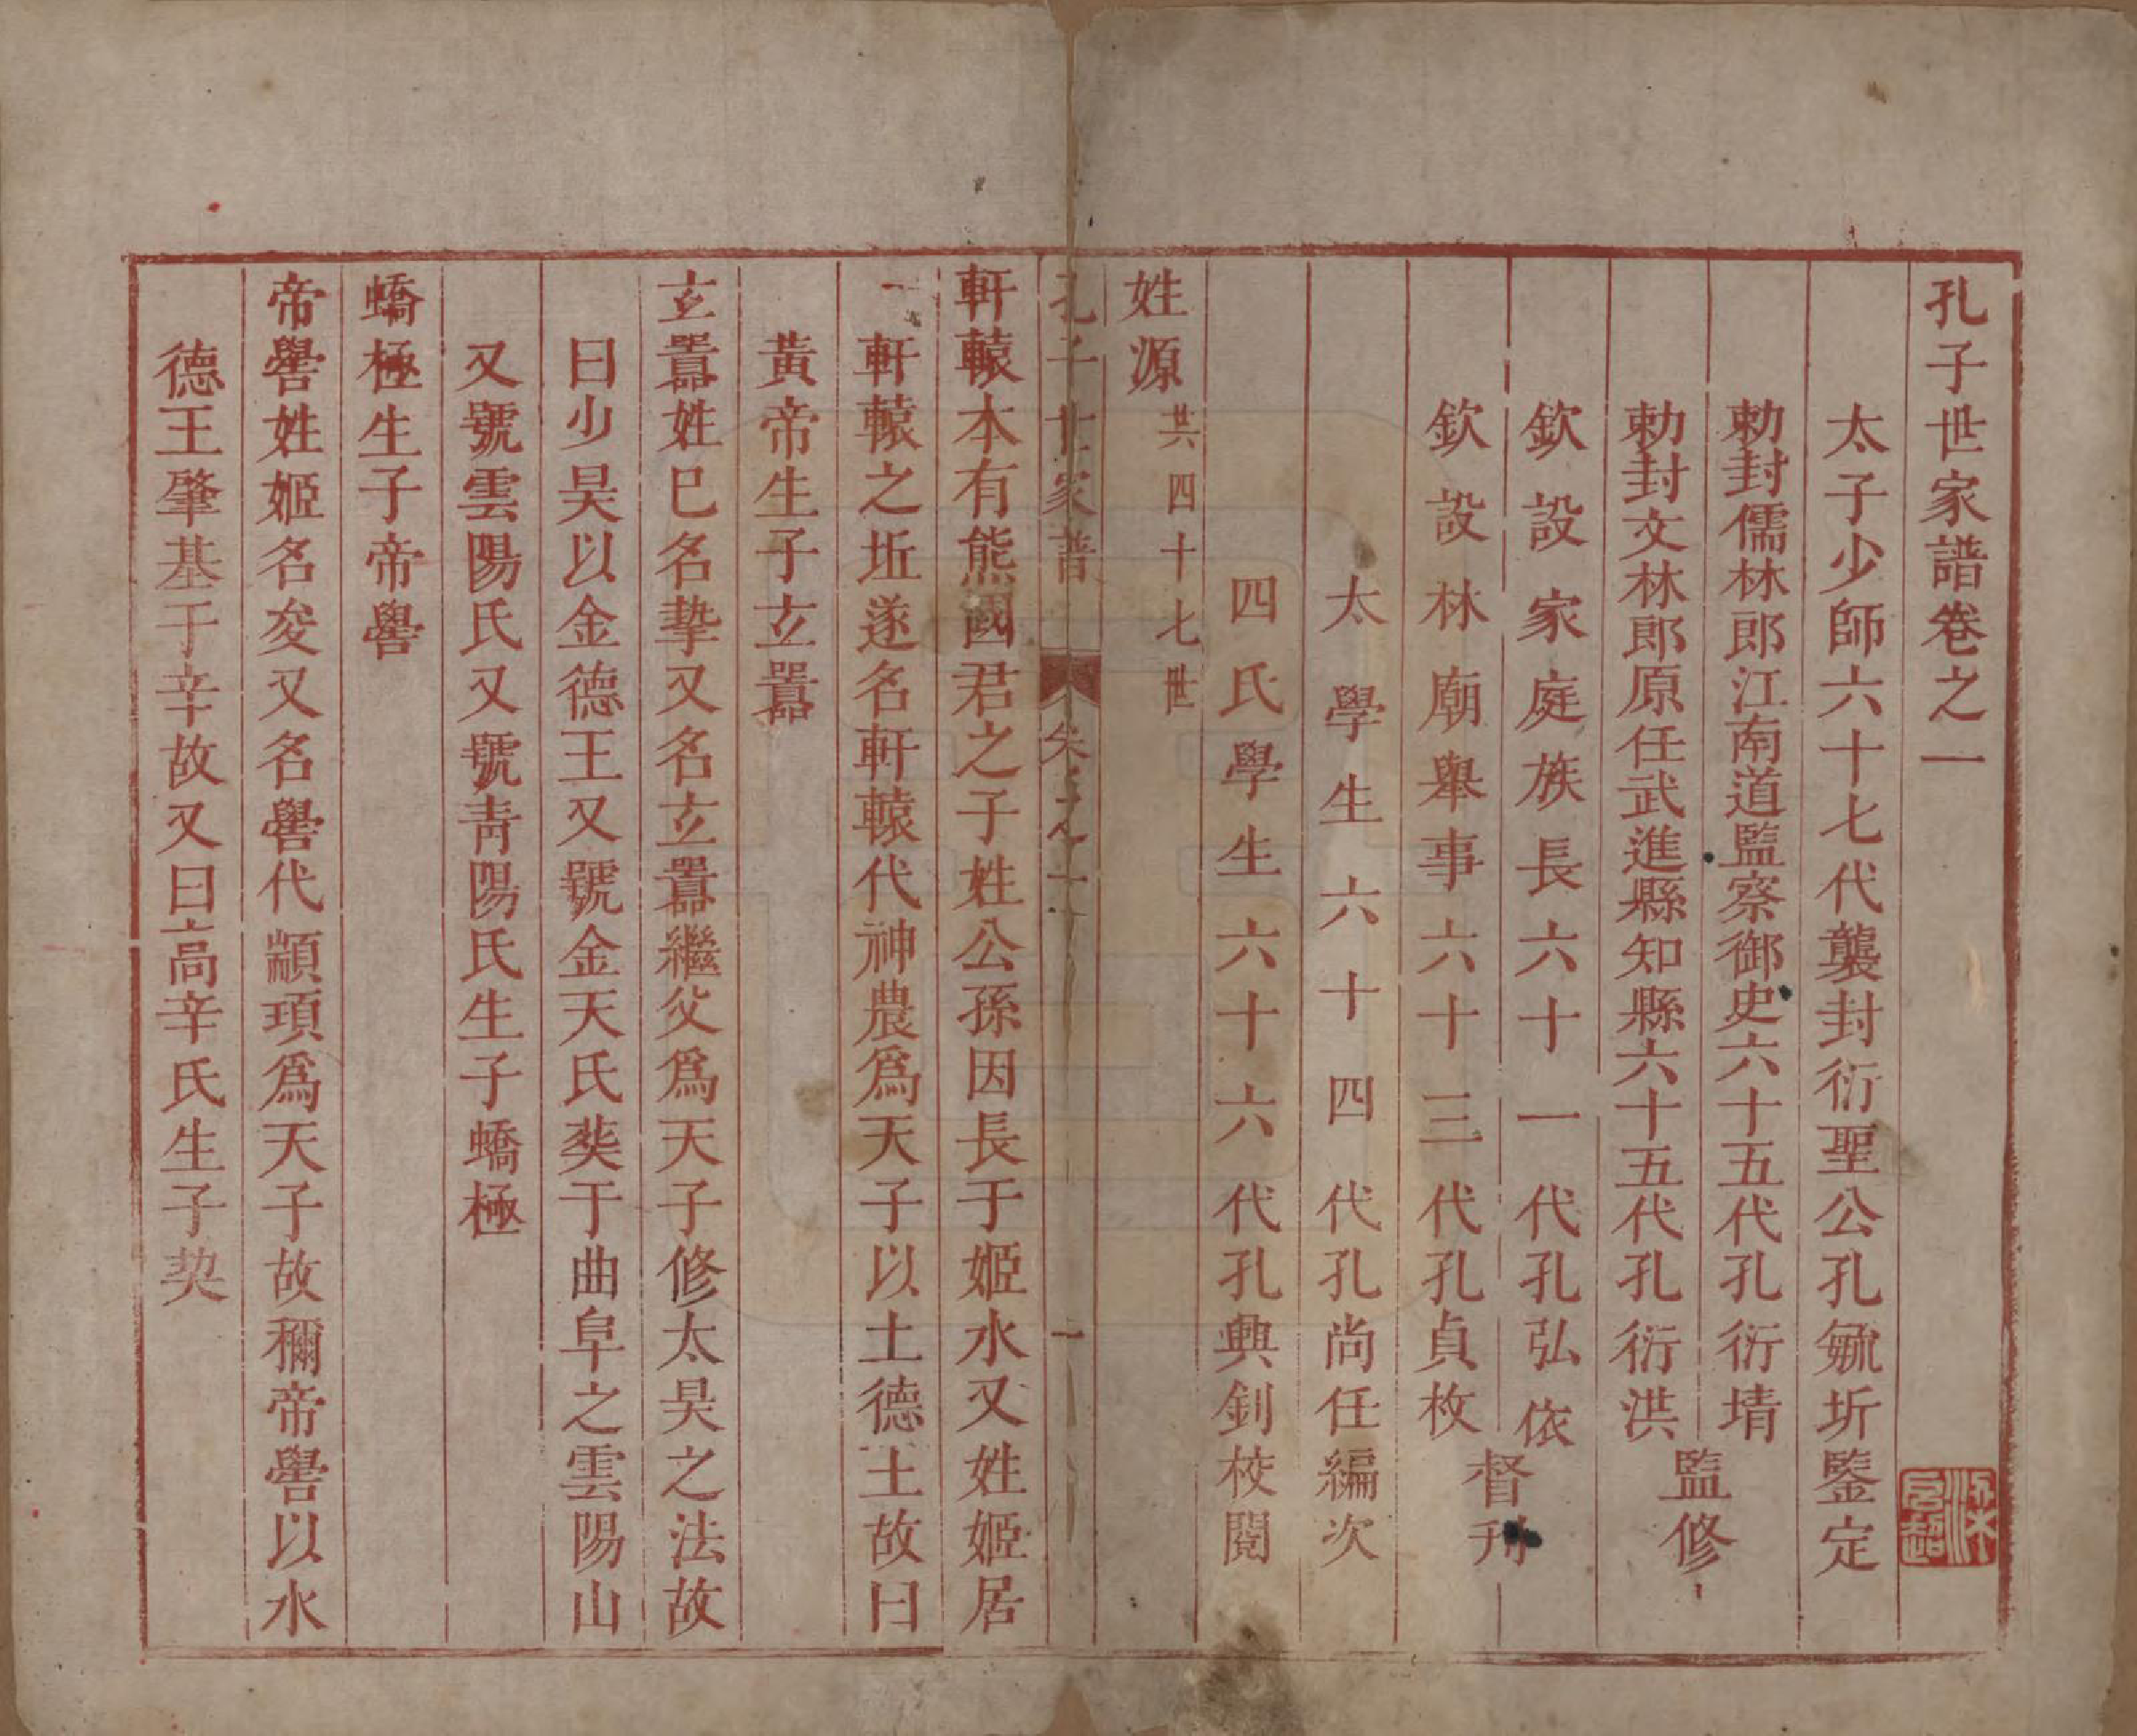 孔子世家譜卷之一
太子少師六十七代襲封衍聖公孔毓圻鑒定
勅封儒林郎江南道監察御史六十五代孔衍堉
勅封文林郎原任武進縣知縣六十五代孔衍洪
監修
欽設家庭族長六十一代孔弘依
欽設林廟舉事六十三代孔貞枚
督刊
太學生六十四代孔尚任編次
四氏學生六十六代孔興釗校閱
姓源 共四十七世
孔子世家譜 卷之一 一
軒轅本有熊國君之子姓公孫因長于姬水又姓姬居
軒轅之丘遂名軒轅代神農爲天子以土德土故曰
黃帝生子玄囂
玄囂姓巳名摯又名玄囂繼父爲天子修太昊之法故
曰少昊以金德王又號金天氏葬于曲阜之雲陽山
又號雲陽氏又號靑陽氏生子蟜極
蟜極生子帝嚳
帝嚳姓姬名夋又名嚳代顓頊爲天子故禰帝嚳以水
德王肇基于辛故又曰高辛氏生子契